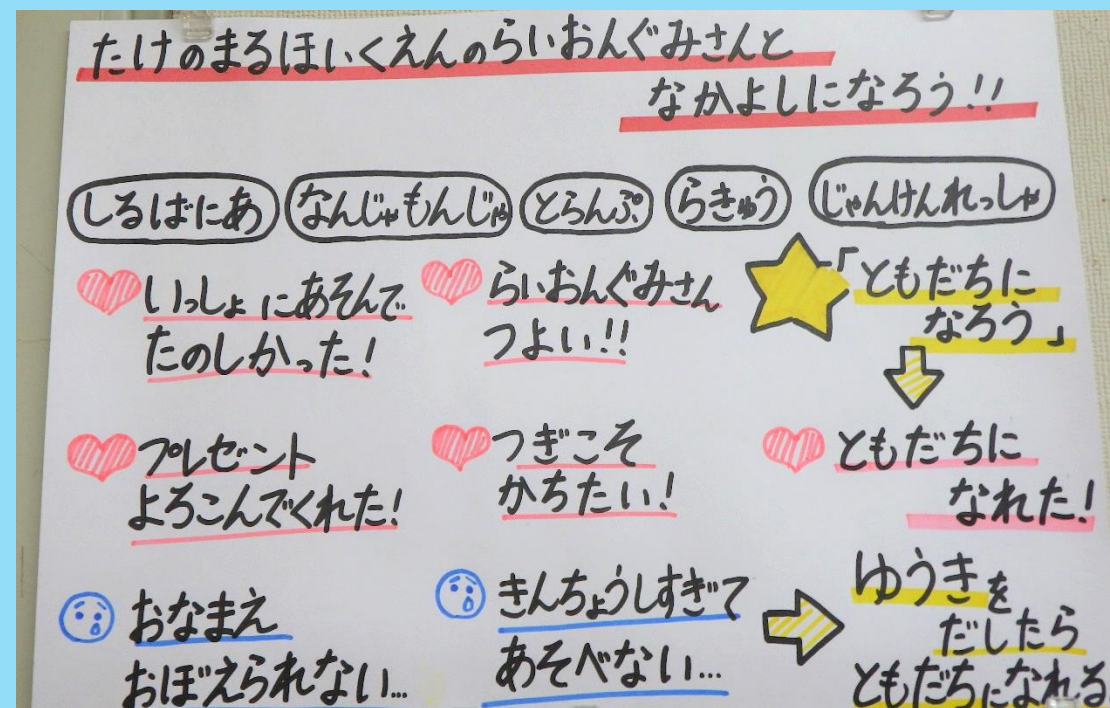 たけのまるほいくえんのらいおんぐみさんと
なかよしになろう!!
しるばにあ なんじゃもんじゃ とらんぷ らきゅう じゃんけんれっしゃ
いっしょにあそんで
たのしかった!
らいおんぐみさん
つよい!!
「ともだちに
なろう」
プレゼント
よろこんでくれた!
つぎこそ
かちたい!
ともだちに
なれた!
おなまえ
おぼえられない...
きんちょうしすぎて
あそべない...
ゆうきを
だしたら
ともだちになれる